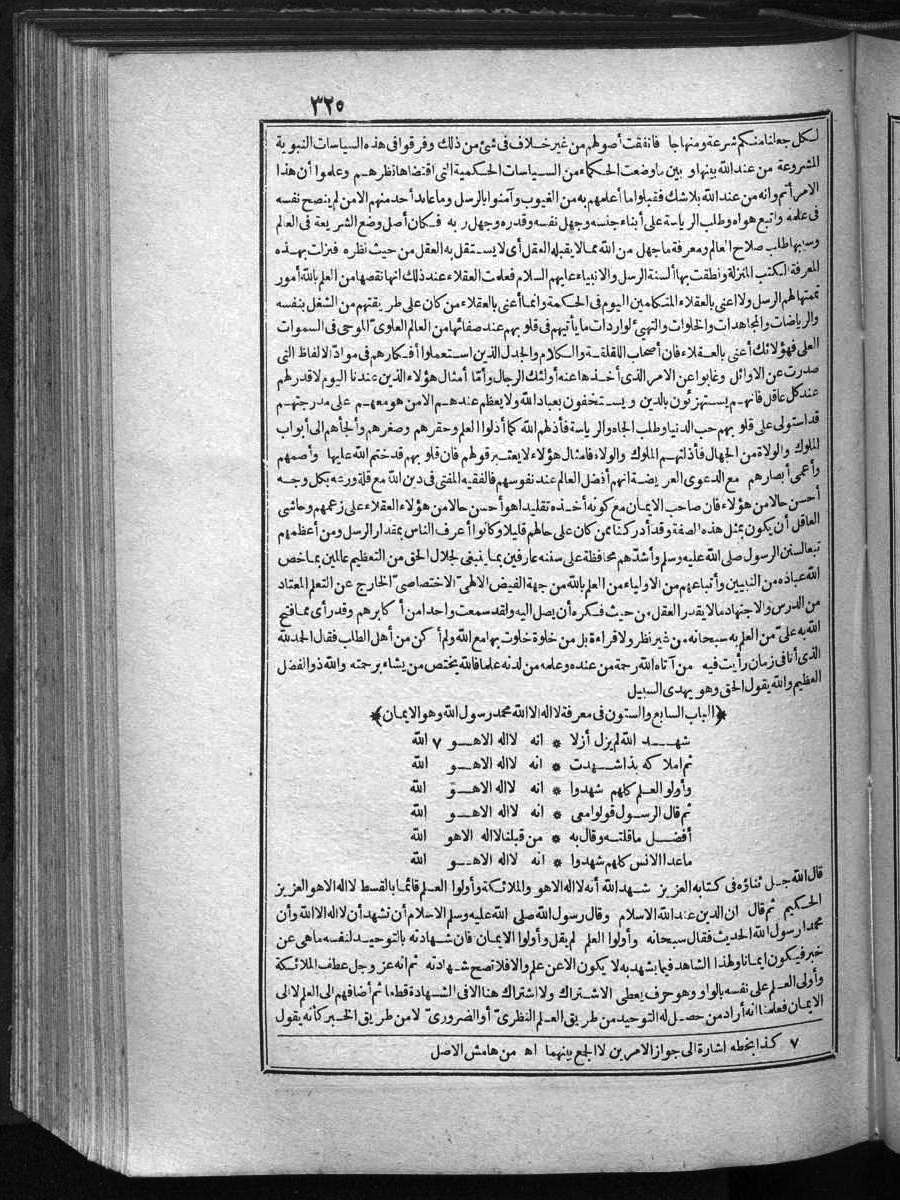 ٣٢٥
لكل جعلنا منكم شرعة ومنهاجا فاتفقت أصولهم من غير خلاف في شئ من ذلك وفرقوا في هذه السياسات النبوية
المشروعة من عند الله بينها وبين ما وضعت الحكماء من السياسات الحكمية التي اقتضاها نظرهم وعلموا أن هذا
الامر أتم وانه من عند الله بلا شك فقبلوا ما أعلمهم به من الغيوب وآمنوا بالرسل وما عاند أحد منهم الا من لم ينصح نفسه
في علمه واتبع هواه وطلب الرياسة على أبناء جنسه وجهل نفسه وقدره وجهل ربه فكان أصل وضع الشريعة في العالم
وسببها طلب صلاح العالم ومعرفة ما جهل من الله مما لا يقبله العقل أى لا يستقل به العقل من حيث نظره فنزلت بهذه
المعرفة الكتب المنزلة ونطقت بها ألسنة الرسل والانبياء عليهم السلام فعلمت العقلاء عند ذلك انها نقصها من العلم بالله أمور
تممتها لهم الرسل ولا أعنى بالعقلاء المتكلمين اليوم في الحكمة وانما أعنى بالعقلاء من كان على طريقتهم من الشغل بنفسه
والرياضات والمجاهدات والخلوات والتهيئ لواردات ما يأتيهم في قلوبهم عند صفائها من العالم العلوى الموحى في السموات
العلى فهؤلائك أعنى بالعقلاء فان أصحاب اللقلقة والكلام والجدل الذين استعملوا أفكارهم في موادّ الالفاظ التي
صدرت عن الاوائل وغابوا عن الامر الذى أخذها عنه أولئك الرجال وأمّا أمثال هؤلاء الذين عندنا اليوم لا قدر لهم
عند كل عاقل فانهم يستهزئون بالدين ويستخفون بعباد الله ولا يعظم عندهم الا من هو معهم على مدرجتهم
قد استولى على قلوبهم حب الدنيا وطلب الجاه والرياسة فأذلهم الله كما أذلوا العلم وحقرهم وصغرهم وألجأهم الى أبواب
الملوك والولاة من الجهال فأذلتهم الملوك والولاة فامثال هؤلاء لا يعتبر قولهم فان قلوبهم قد ختم الله عليها وأصمهم
وأعمى أبصارهم مع الدعوى العريضة انهم أفضل العالم عند نفوسهم فالفقيه المفتى في دين الله مع قلة ورعه بكل وجه
أحسن حالا من هؤلاء فان صاحب الايمان مع كونه أخذه تقليدا هو أحسن حالا من هؤلاء العقلاء على زعمهم وحاشى
العاقل أن يكون بمثل هذه الصفة وقد أدركنا ممن كان على حالهم قليلا وكانوا أعرف الناس بمقدار الرسل ومن أعظمهم
تبعا لسنن الرسول صلى الله عليه وسلم وأشدّهم محافظة على سننه عارفين بما ينبغى لجلال الحق من التعظيم عالمين بما خص
الله عباده من النبيين وأتباعهم من الاولياء من العلم بالله من جهة الفيض الالهىّ الاختصاصىّ الخارج عن التعلم المعتاد
من الدرس والاجتهاد ما لا يقدر العقل من حيث فكره أن يصل اليه ولقد سمعت واحدا من أكابرهم وقد رأى مما فتح
الله به علىّ من العلم به سبحانه من غير نظر ولا قراءة بل من خلوة خلوت بها مع الله ولم أكن من أهل الطلب فقال الحمد لله
الذى أنا في زمان رأيت فيه من آتاه الله رحمة من عنده وعلمه من لدنه علما فالله يختص من يشاء برحمته والله ذو الفضل
العظيم والله يقول الحق وهو يهدى السبيل
﴿الباب السابع والستون في معرفة لا اله الا الله محمد رسول الله وهو الايمان﴾
شهد الله لم يزل أزلا * انه لا اله الا هو ٧ الله
ثم املاكه بذا شهدت * انه لا اله الا هو الله
وأولو العلم كلهم شهدوا * انه لا اله الا هو الله
ثم قال الرسول قولوا معى * انه لا اله الا هو الله
أفضل ما قلته وقال به * من قبلنا لا اله الا هو الله
ما عدا الانس كلهم شهدوا * انه لا اله الا هو الله
قال الله جل ثناؤه في كتابه العزيز شهد الله أنه لا اله الا هو والملائكة وأولوا العلم قائما بالقسط لا اله الا هو العزيز
الحكيم ثم قال ان الدين عند الله الاسلام وقال رسول الله صلى الله عليه وسلم الاسلام أن تشهد أن لا اله الا الله وأن
محمدا رسول الله الحديث فقال سبحانه وأولوا العلم لم يقل وأولوا الايمان فان شهادته بالتوحيد لنفسه ما هى عن
خبر فيكون ايمانا ولهذا الشاهد فيما يشهد به لا يكون الا عن علم والا فلا تصح شهادته ثم انه عز وجل عطف الملائكة
وأولى العلم على نفسه بالواو وهو حرف يعطى الاشتراك ولا اشتراك هنا الا في الشهادة قطعا ثم أضافهم الى العلم لا الى
الايمان فعلمنا انه أراد من حصل له التوحيد من طريق العلم النظرىّ أو الضرورىّ لا من طريق الخبر كأنه يقول
٧ كذا بخطه اشارة الى جواز الامرين لا الجمع بينهما اه من هامش الاصل